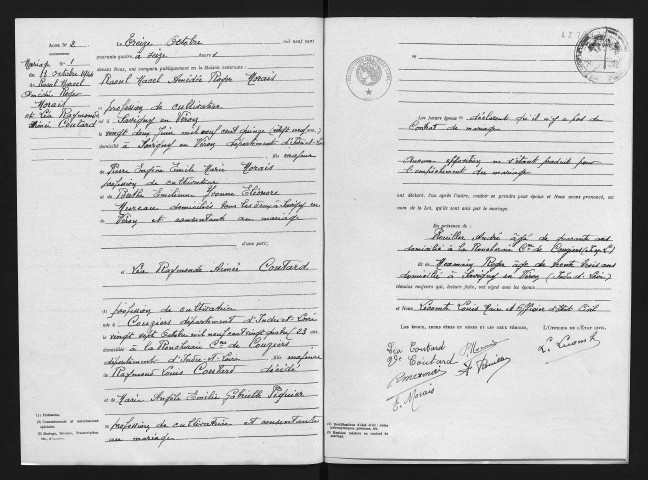 ACTE N° 2
Mariage N° 1
du 13 octobre 1944
de Raoul Marcel
Amédée Roger
Morais
et Léa Raymonde
Aimée Coutard
Le treize Octobre mil neuf cent
quarante quatre, à seize heures
devant Nous, ont comparu publiquement en la Maison commune :
Raoul Marcel Amédée Roger Morais
(1) profession de cultivateur
né à Savigny en Véron
le vingt deux Juin mil neuf cent quinze (vingt neuf ans)
domicilié à Savigny en Véron, département d'Indre-et-Loire
fils majeur
de Pierre Eugène Emile Marie Morais
profession de cultivateur
et de Berthe Emilienne Yvonne Eléonore
Mureau domiciliés tous les deux à Savigny en
Véron et consentant au mariage
d'une part;
et Léa Raymonde Aimée Coutard
(1) profession de cultivatrice
née à Couziers département d'Indre-et-Loire
le vingt sept Octobre mil neuf cent vingt 23 ans
domiciliée à la Roncheraie Cne de Couziers
département d'Indre-et-Loire, fille majeure
de Raymond Louis Coutard décédé
et de Marie Angèle Emilie Gabrielle Péquier
(2) profession de cultivatrice et consentante
au mariage
(1) Profession.
(2) Consentements et autorisations spéciales.
(3) Mariage, Divorce, Transcription
Les futurs époux déclarent qu'il n'y a pas de
Contrat de mariage
Aucune opposition ne s'étant produit pour
l'empêchement du mariage
ont déclaré, l'un après l'autre, vouloir se prendre pour époux et Nous avons prononcé, au
nom de la Loi, qu'ils sont unis par le mariage.
En présence de :
André âgé de quarante ans
domicilié à la Roncheraie Cne de Couziers
et de Roger âgé de trente trois ans
domicilié à Savigny en Véron (Indre et Loire)
témoins majeurs qui, lecture faite, ont signé avec les époux
et Nous Lecomte Louis Maire et Officier d'Etat Civil
LES ÉPOUX, LEURS PÈRES ET MÈRES ET LES DEUX TÉMOINS,
L'OFFICIER DE L'ÉTAT CIVIL,
Léa Coutard
Vve Coutard
E. Morais
L. Lecomte